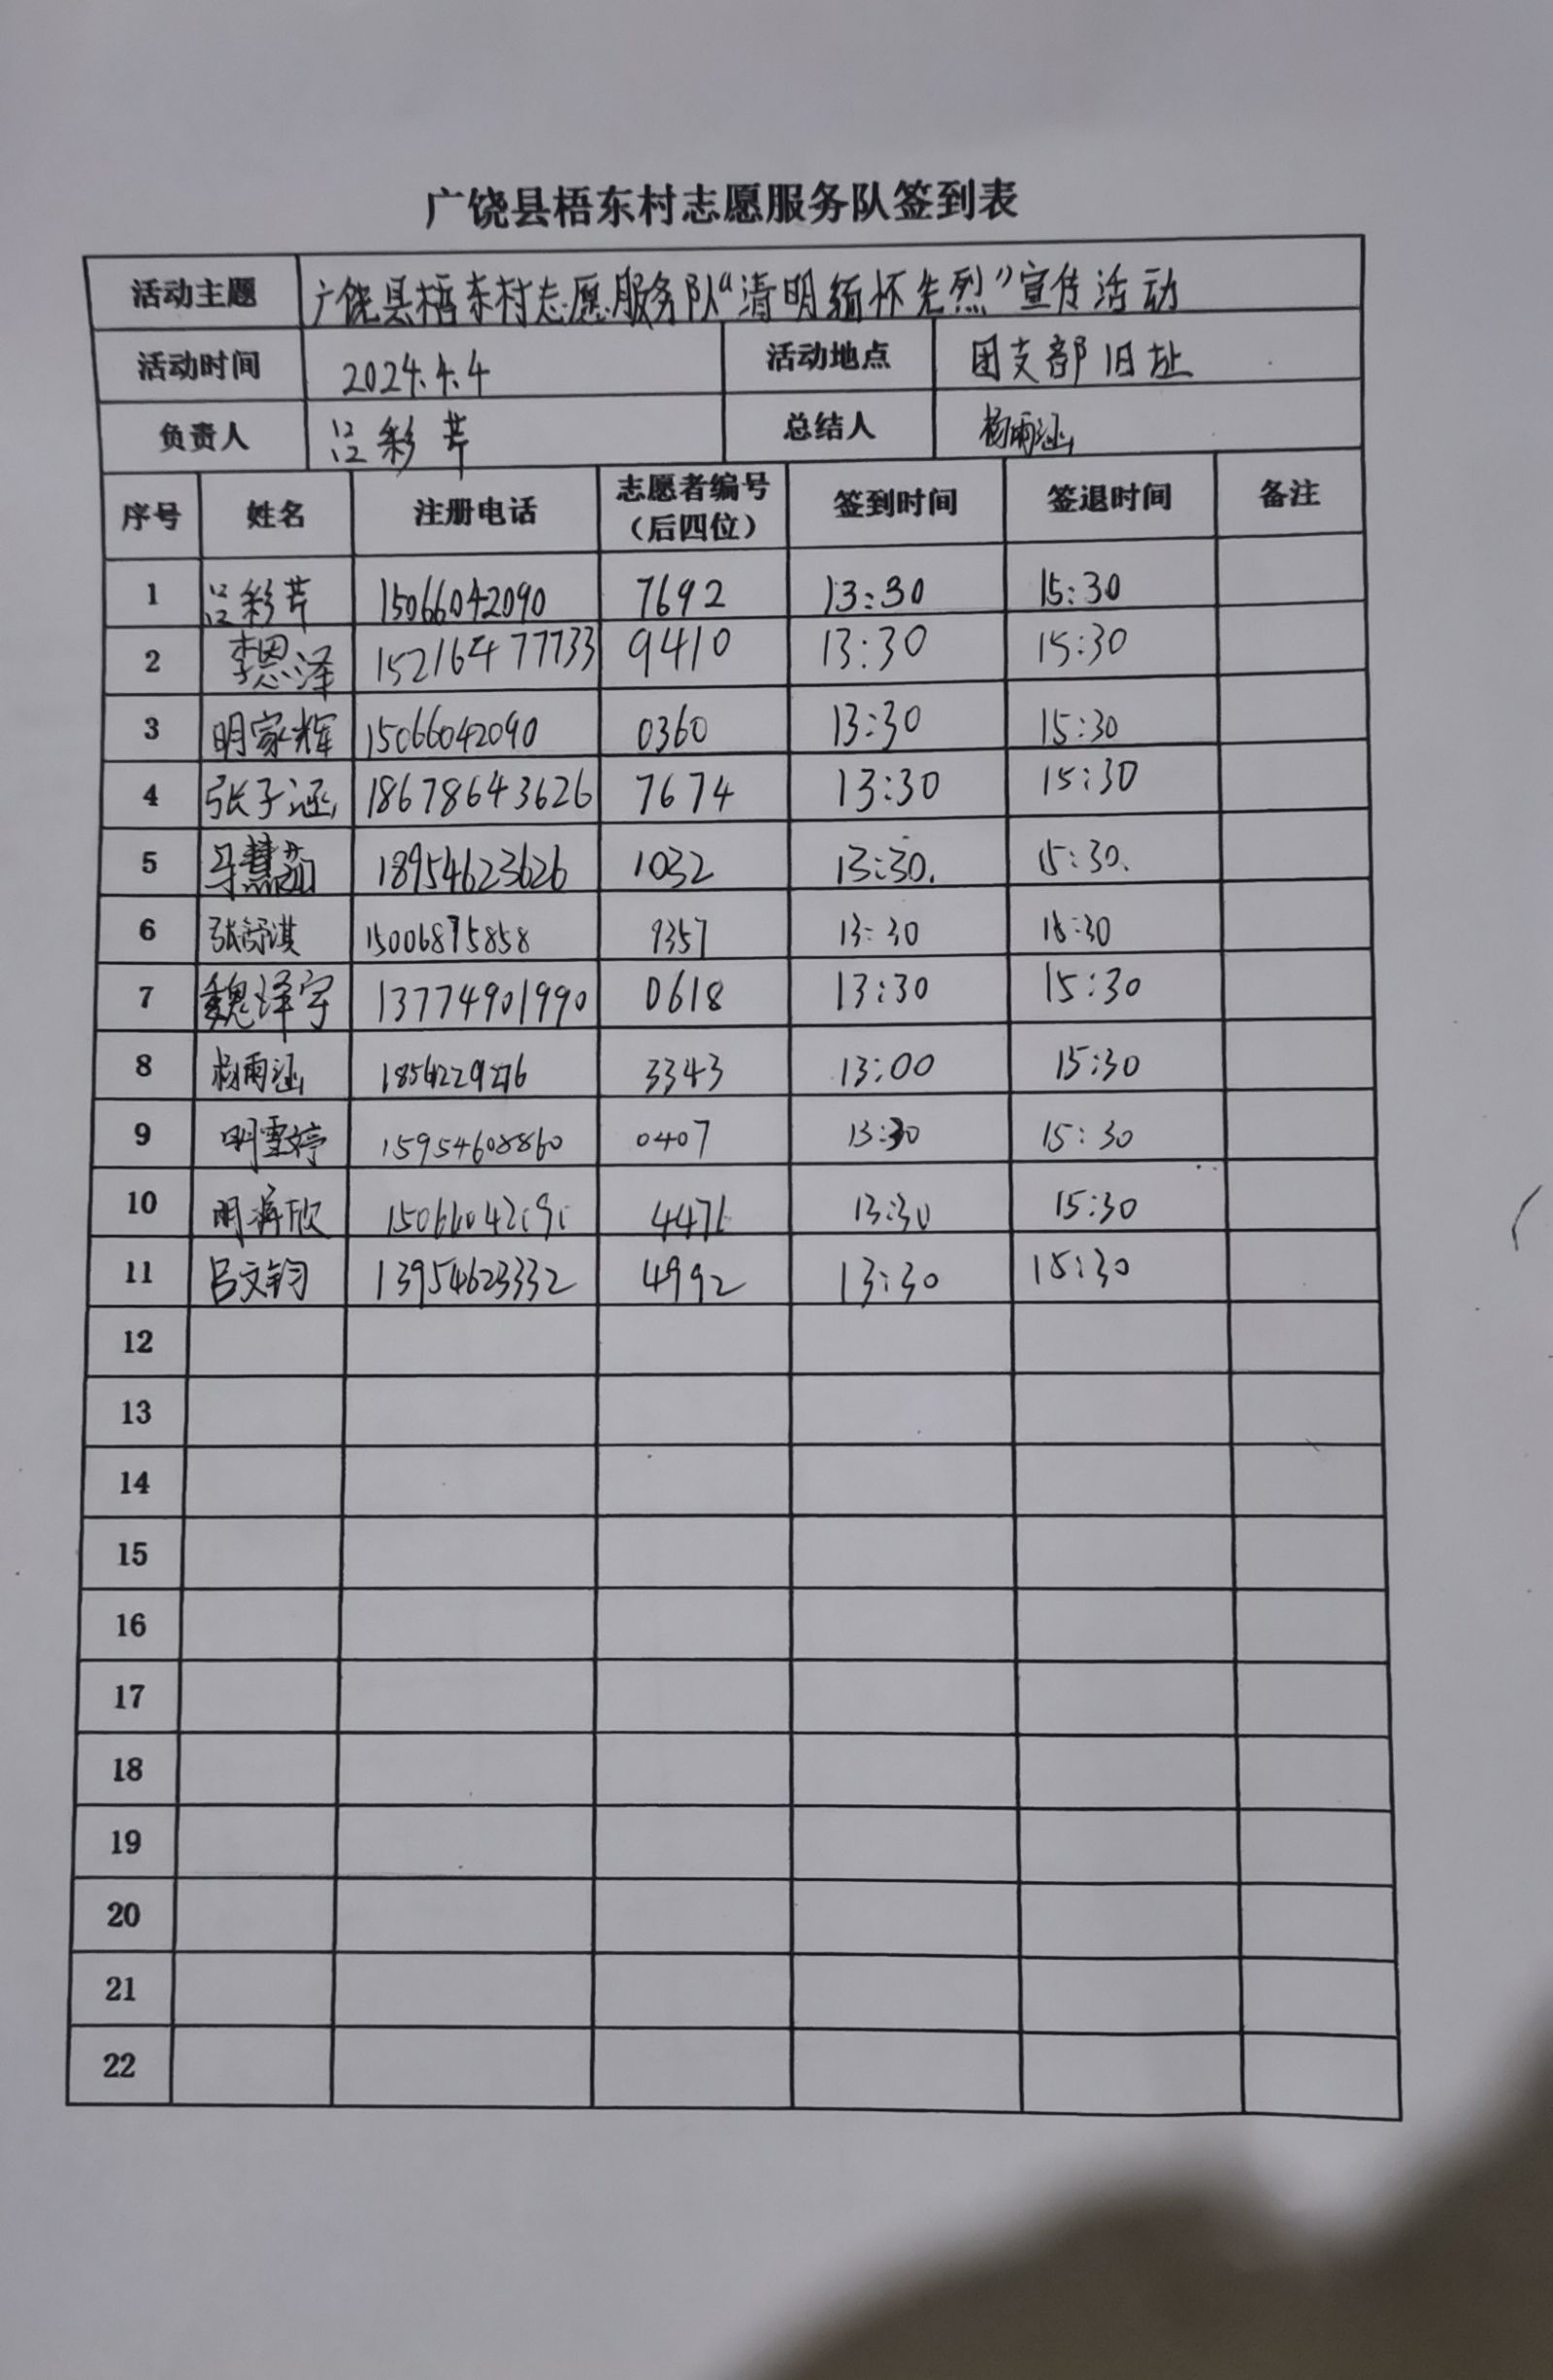 广饶县梧东村志愿服务队签到表
活动主题 广饶县梧东村志愿服务队“清明缅怀先烈”宣传活动
活动时间 2024.4.4 活动地点 团支部旧址
负责人 吕彩芹 总结人 杨雨涵
序号 姓名 注册电话 志愿者编号（后四位） 签到时间 签退时间 备注
1 吕彩芹 15066042090 7692 13:30 15:30
2 李恩泽 9410 13:30 15:30
3 明家辉 15066042090 0360 13:30 15:30
4 张子涵 18678643626 7674 13:30 15:30
5 马慧茹 18954623626 1032 13:30. 15:30.
6 张舒淇 15006875858 9357 13:30 15:30
7 魏泽宇 13774901990 0618 13:30 15:30
8 杨雨涵 3343 13:00 15:30
9 明雪婷 15954608860 0407 13:30 15:30
10 13:30 15:30
11 吕文钧 13954623332 4992 13:30 15:30
12
13
14
15
16
17
18
19
20
21
22